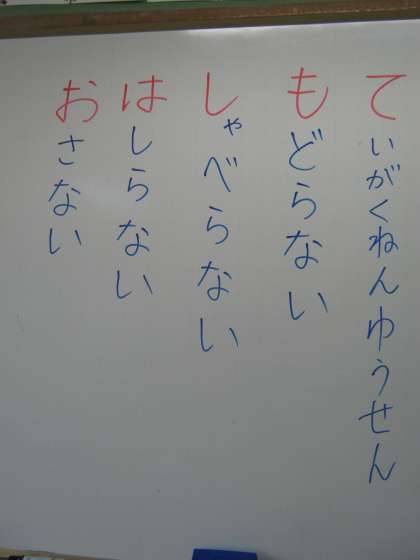 ていがくねんゆうせん
もどらない
しゃべらない
はしらない
おさない